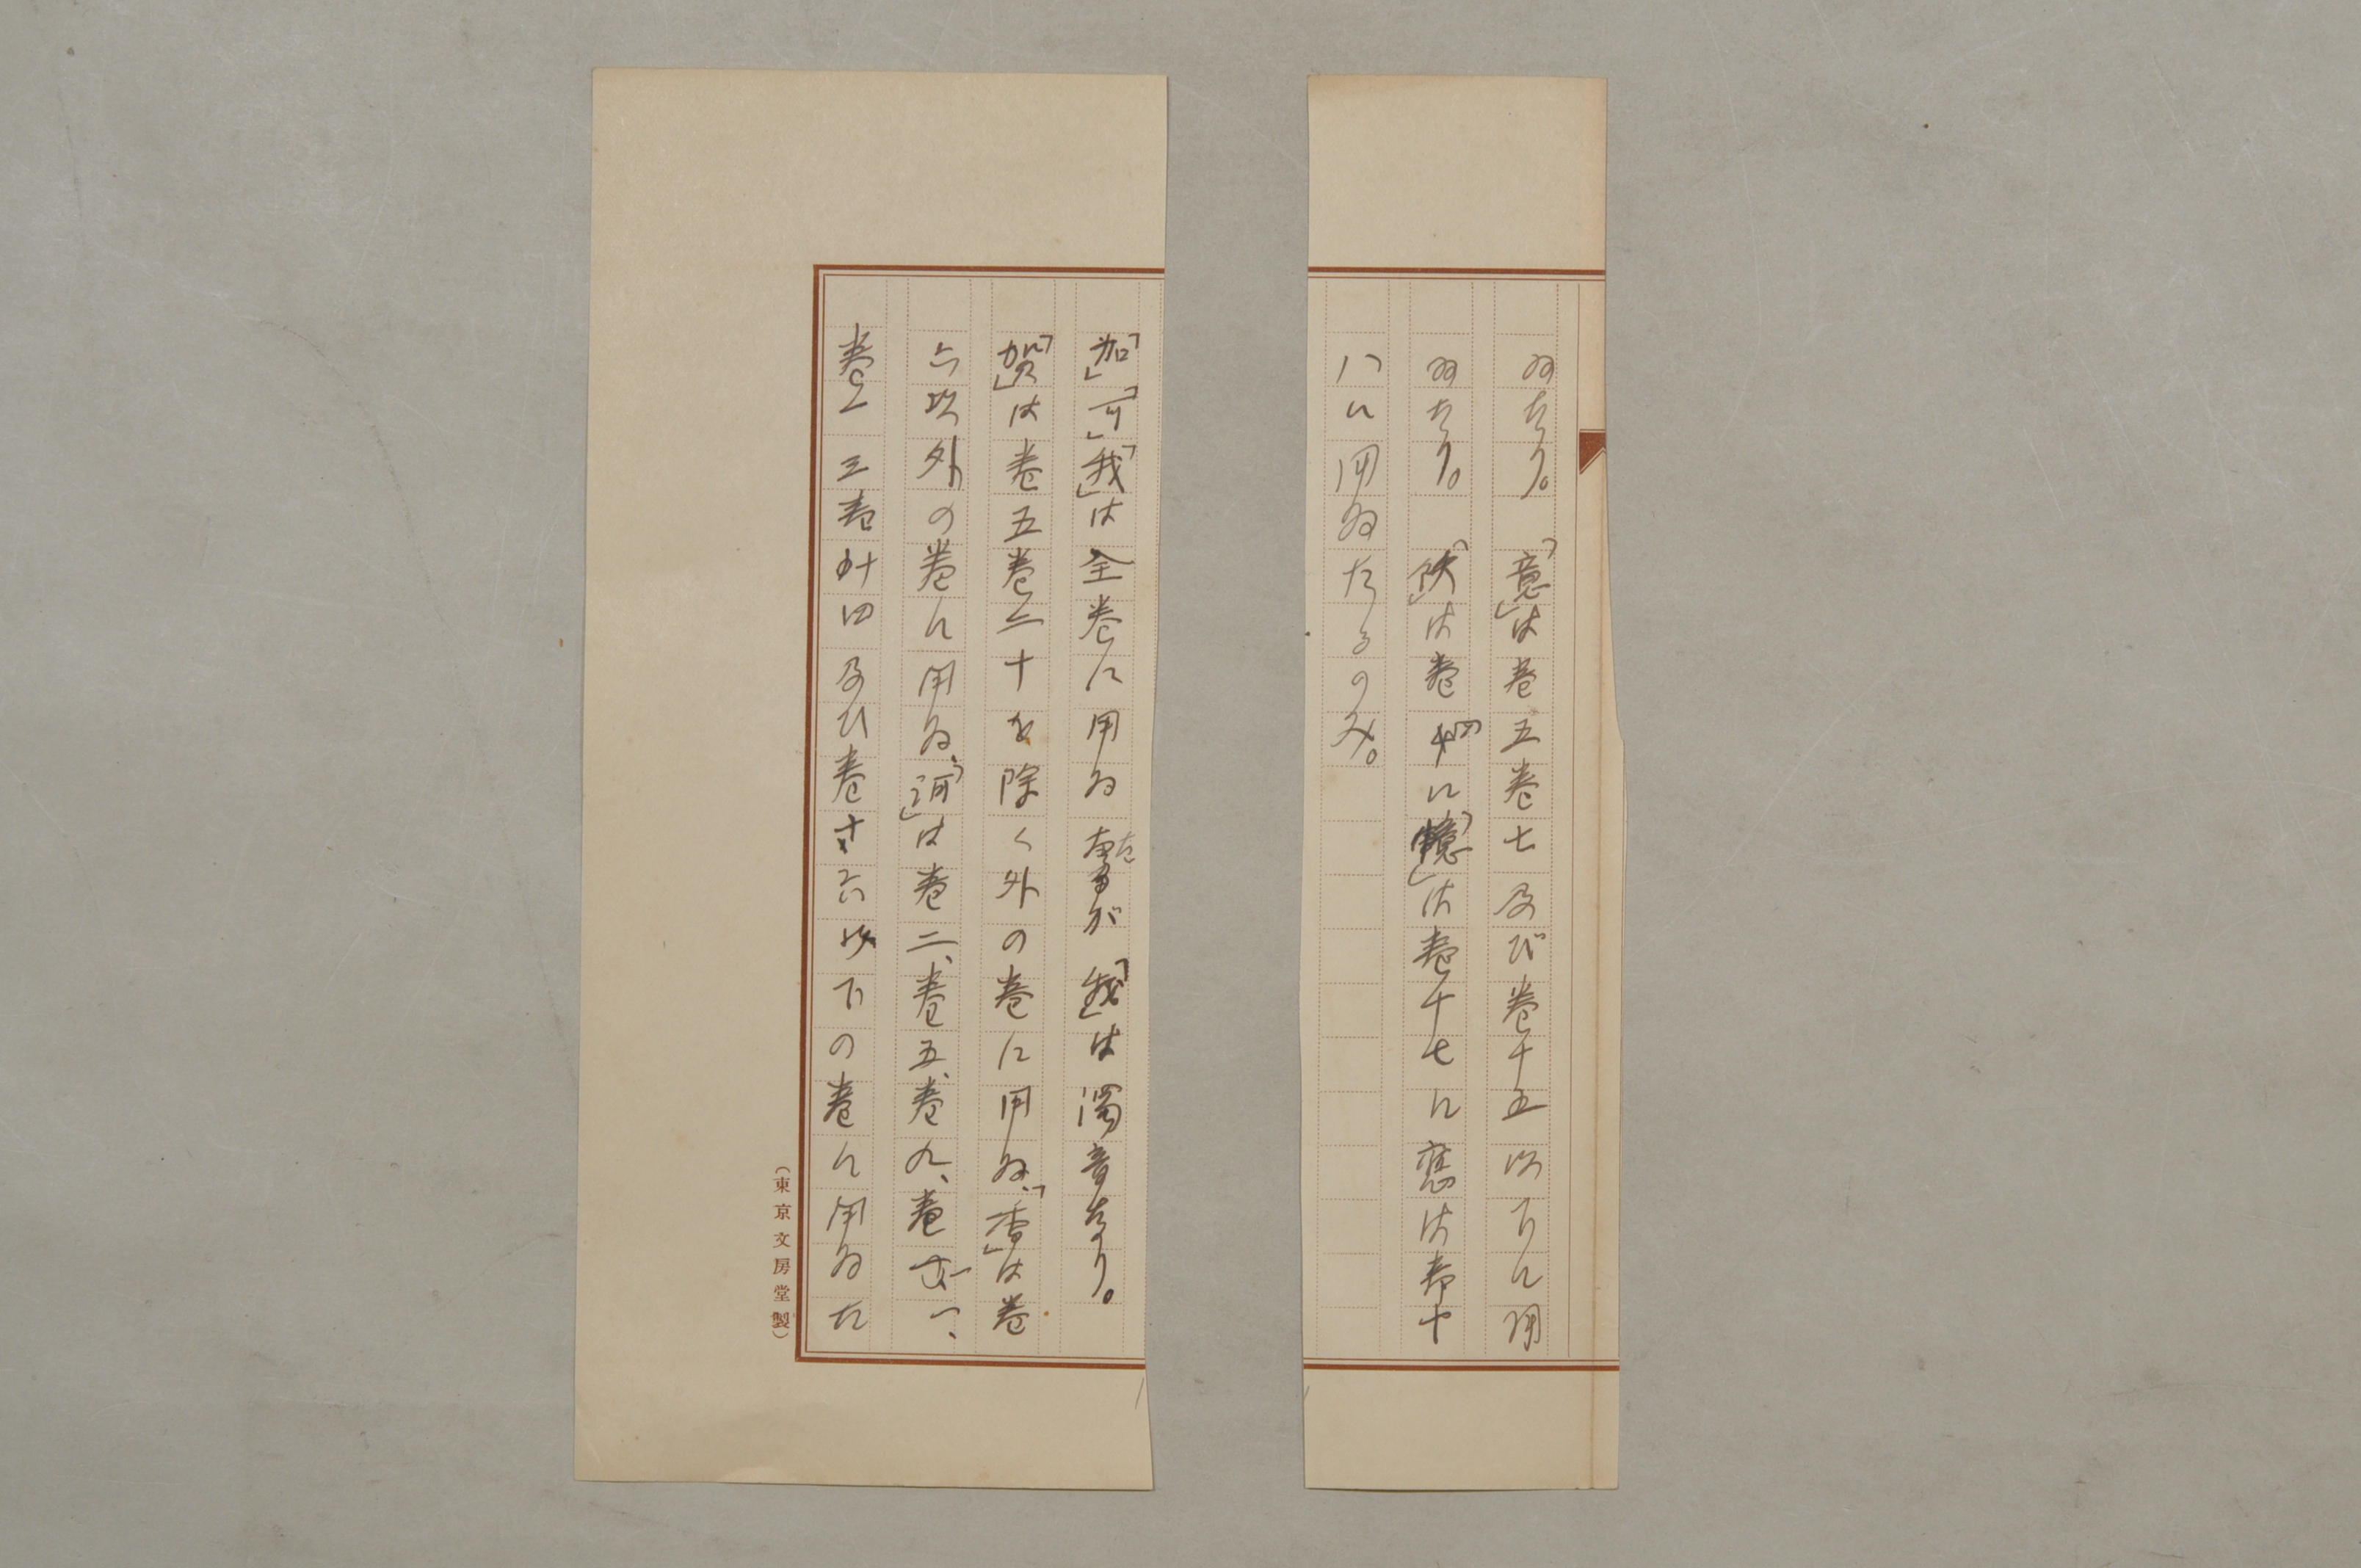 ゐたり。「意」は巻五巻七及び巻十五以下に用
ゐたり。「飫」は巻十四に「憶」は巻十七に應は巻十
八に用ゐたるのみ。
「加」「可」「我」は全巻に用ゐたるが「我」は濁音なり。
「賀」は巻五巻二十を除く外の巻に用ゐ、「香」は巻
六以外の巻に用ゐ、「河」は巻二、巻五、巻九、巻廿一、
巻三巻十四及び巻十六以下の巻に用ゐた
(東京文房堂製)